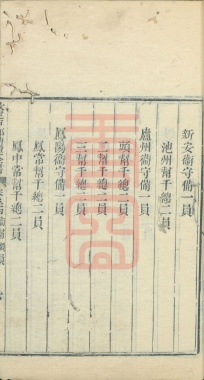 新安衛守備一員
池州幫千總二員
廬州衛守備一員
頭幫千總二員
二幫千總二員
三幫千總二員
鳳陽衛守備一員
鳳常幫千總二員
鳳中常幫千總二員